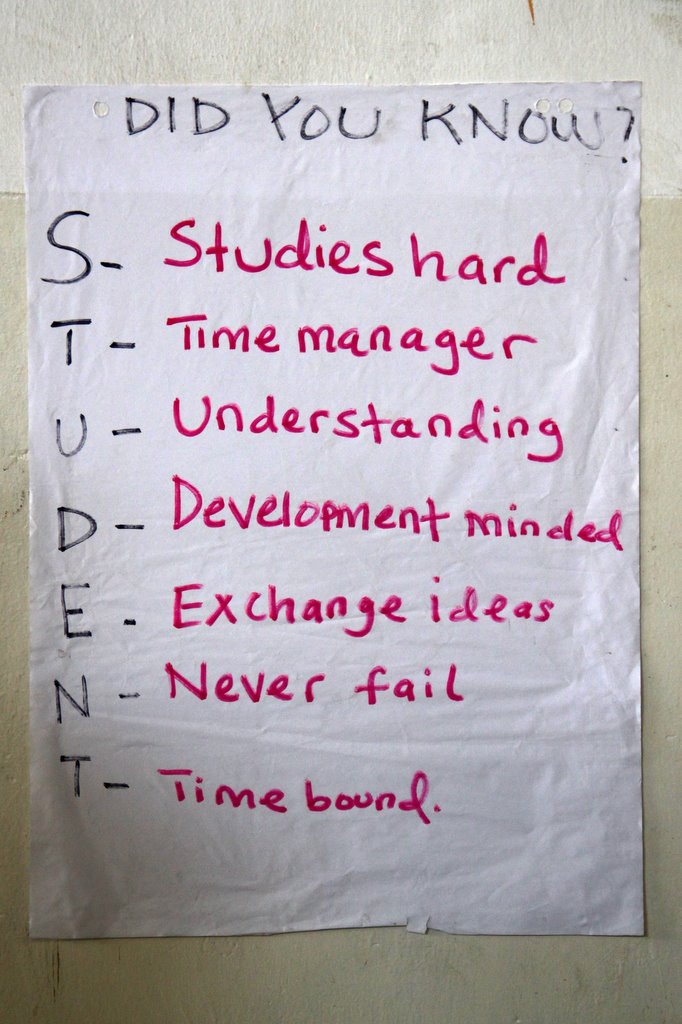 DID YOU KNOW?
S- Studies hard
T- Time manager
U- Understanding
D- Development minded
E- Exchange ideas
N- Never fail
T- Time bound.